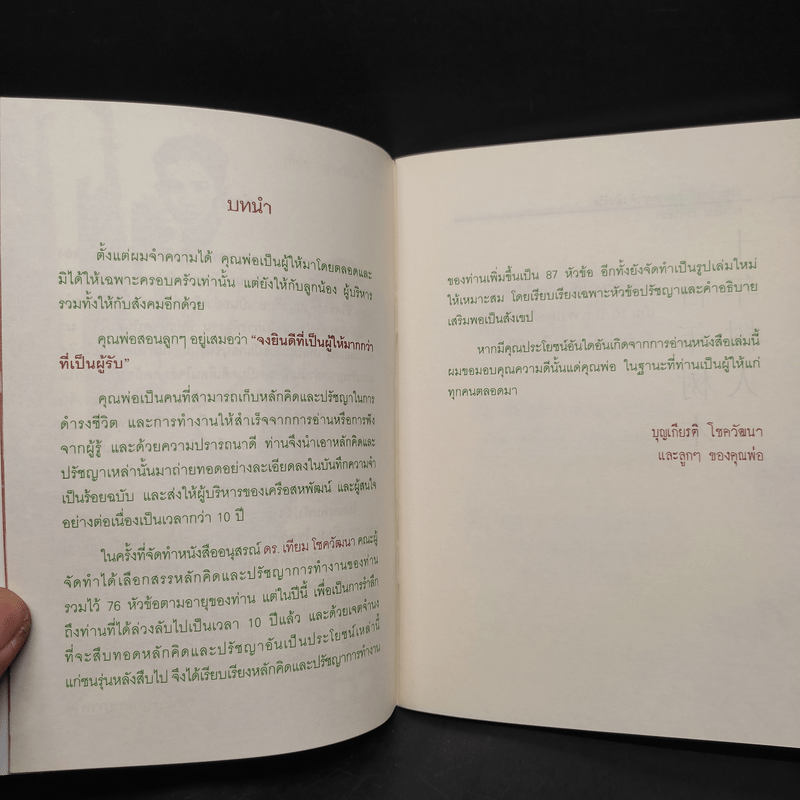 บทนำ
ตั้งแต่ผมจำความได้ คุณพ่อเป็นผู้ให้มาโดยตลอดและ
มิได้ให้เฉพาะครอบครัวเท่านั้น แต่ยังให้กับลูกน้อง ผู้บริหาร
รวมทั้งให้กับสังคมอีกด้วย
คุณพ่อสอนลูกๆ อยู่เสมอว่า “จงยินดีที่เป็นผู้ให้มากกว่า
ที่เป็นผู้รับ”
คุณพ่อเป็นคนที่สามารถเก็บหลักคิดและปรัชญาในการ
ดำรงชีวิต และการทำงานให้สำเร็จจากการอ่านหรือการฟัง
จากผู้รู้ และด้วยความปรารถนาดี ท่านจึงนำเอาหลักคิดและ
ปรัชญาเหล่านั้นมาถ่ายทอดอย่างละเอียดลงในบันทึกความจำ
เป็นร้อยฉบับ และส่งให้ผู้บริหารของเครือสหพัฒน์ และผู้สนใจ
อย่างต่อเนื่องเป็นเวลากว่า 10 ปี
ในครั้งที่จัดทำหนังสืออนุสรณ์ ดร. เทียม โชควัฒนา คณะผู้
จัดทำได้เลือกสรรหลักคิดและปรัชญาการทำงานของท่าน
รวมไว้ 76 หัวข้อตามอายุของท่าน แต่ในปีนี้ เพื่อเป็นการรำลึก
ถึงท่านที่ได้ล่วงลับไปเป็นเวลา 10 ปีแล้ว และด้วยเจตจำนง
ที่จะสืบทอดหลักคิดและปรัชญาอันเป็นประโยชน์เหล่านี้
แก่ชนรุ่นหลังสืบไป จึงได้เรียบเรียงหลักคิดและปรัชญาการทำงาน
ของท่านเพิ่มขึ้นเป็น 87 หัวข้อ อีกทั้งยังจัดทำเป็นรูปเล่มใหม่
ให้เหมาะสม โดยเรียบเรียงเฉพาะหัวข้อปรัชญาและคำอธิบาย
เสริมพอเป็นสังเขป
หากมีคุณประโยชน์อันใดอันเกิดจากการอ่านหนังสือเล่มนี้
ผมขอมอบคุณความดีนั้นแด่คุณพ่อ ในฐานะที่ท่านเป็นผู้ให้แก่
ทุกคนตลอดมา
บุญเกียรติ โชควัฒนา
และลูกๆ ของคุณพ่อ